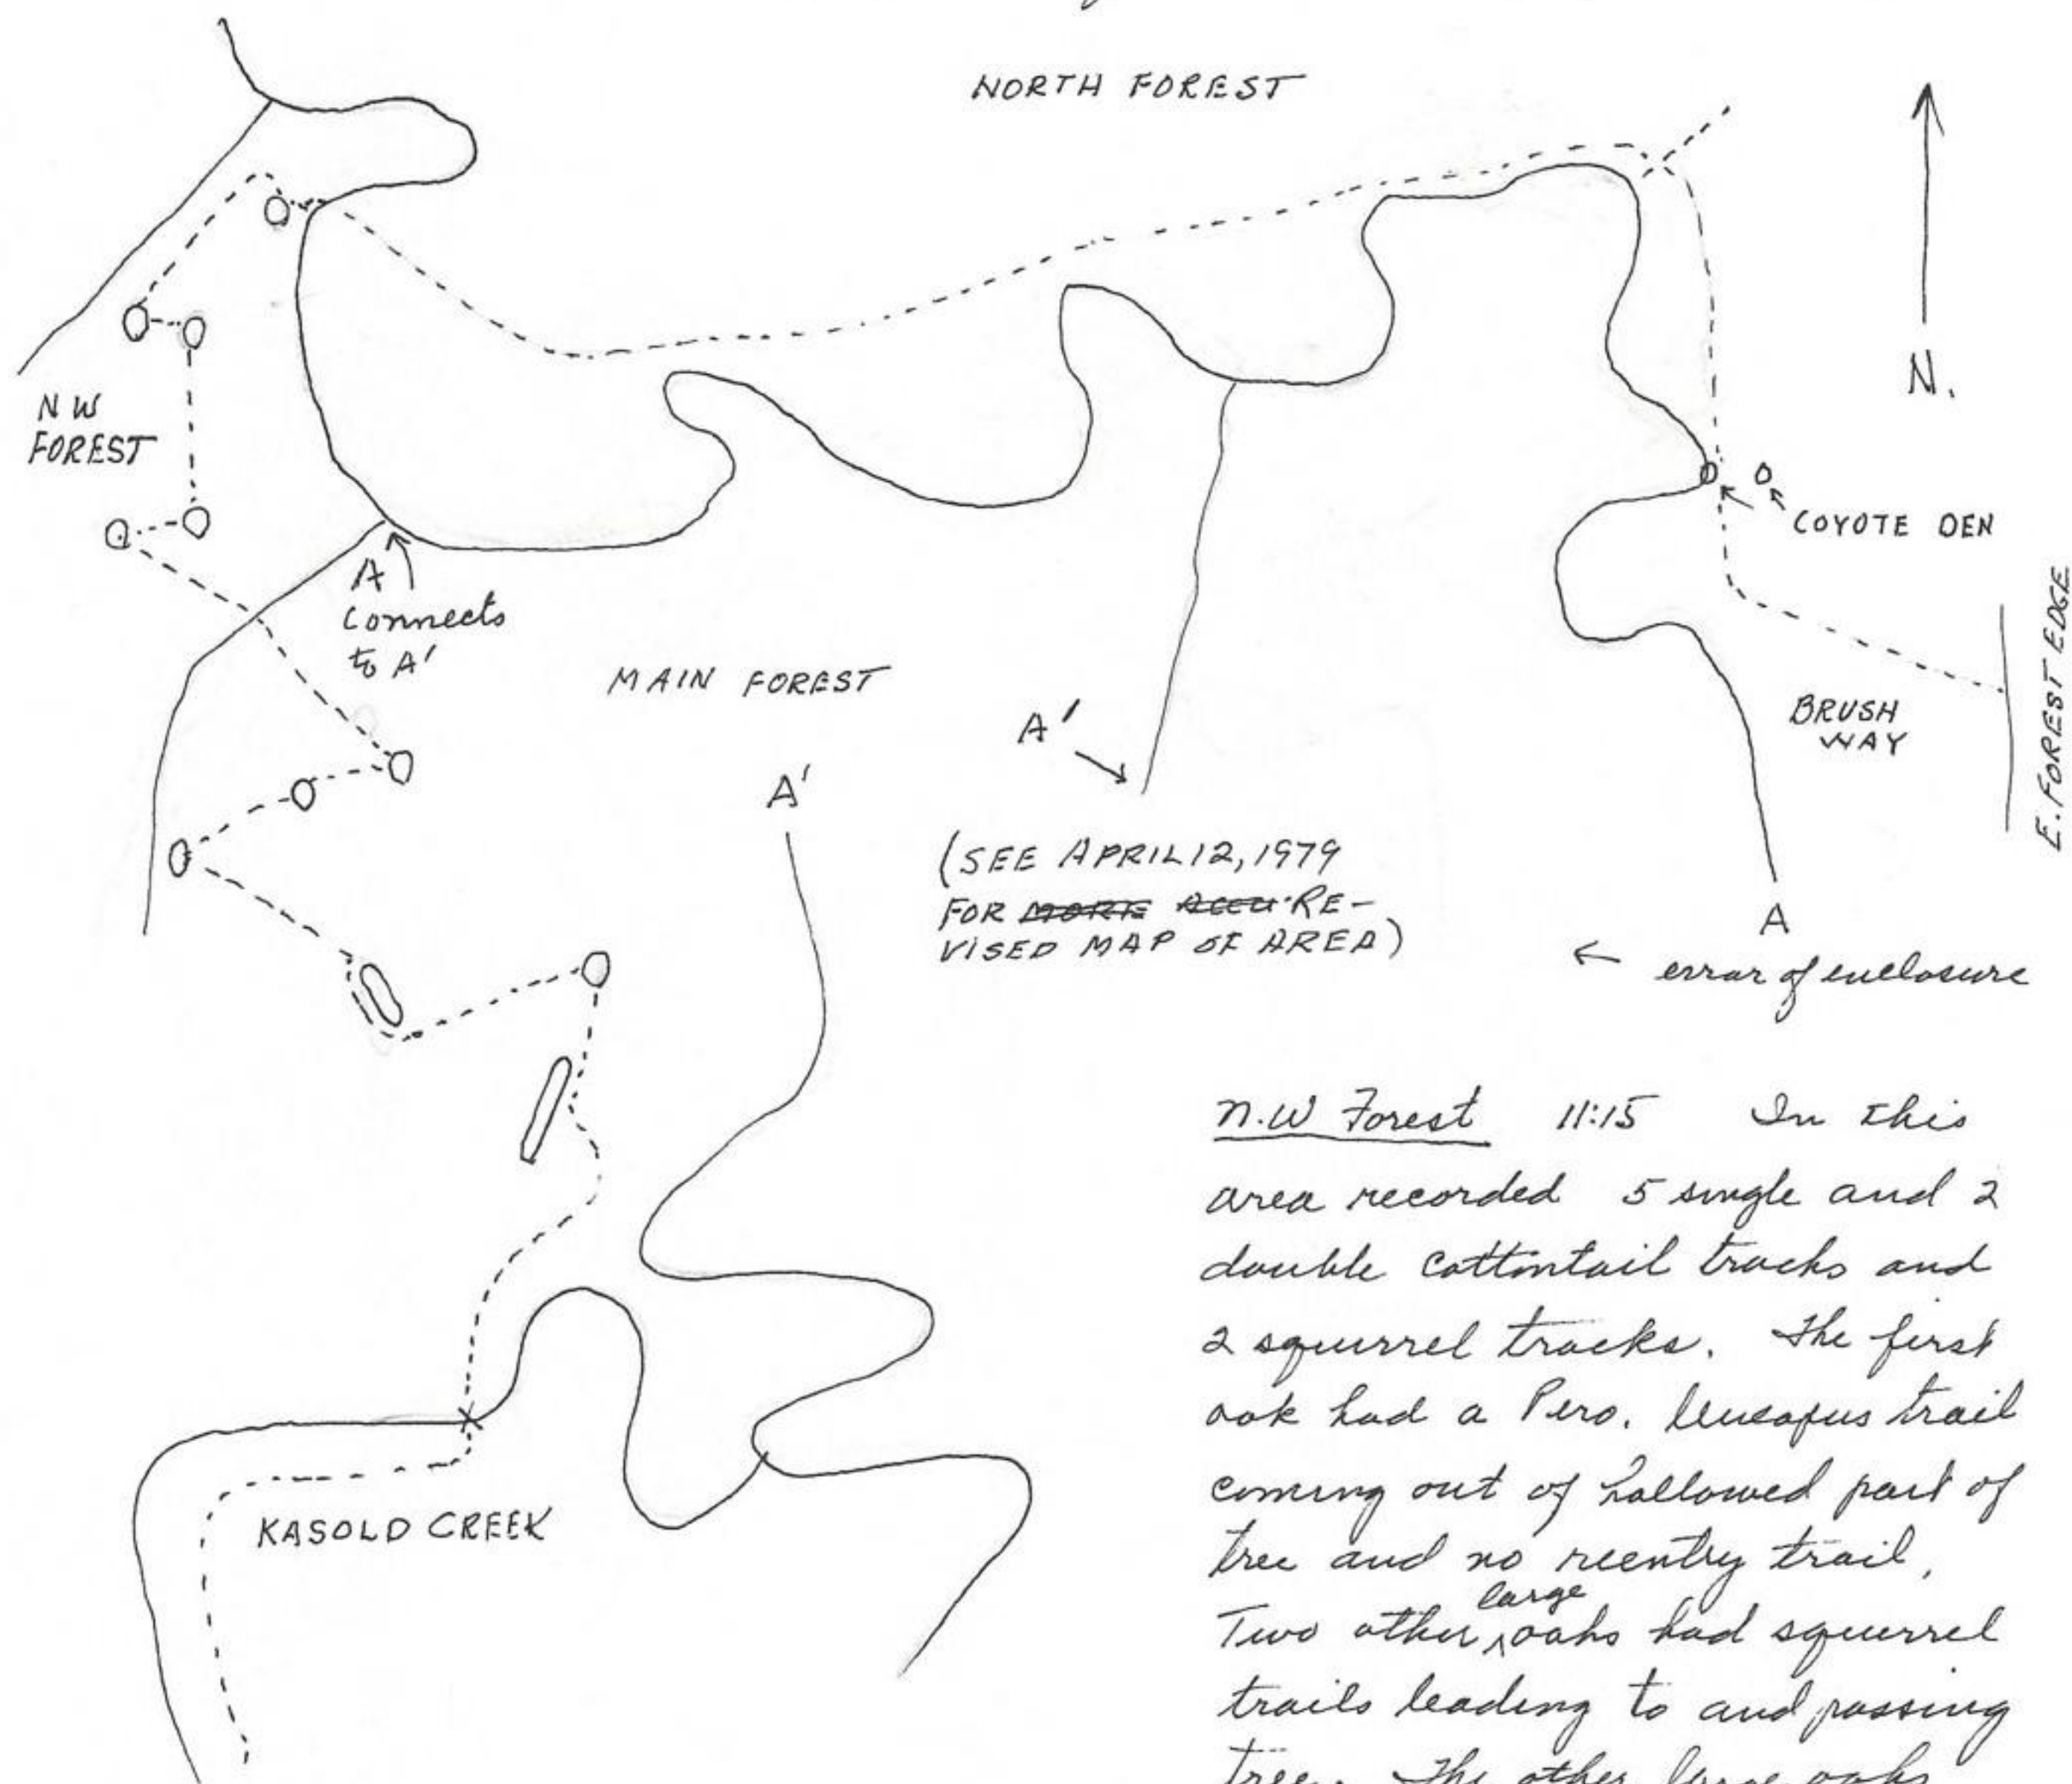 NORTH FOREST
N.
NW
FOREST
COYOTE DEN
A
Connects
to A'
E. FOREST EDGE
MAIN FOREST
BRUSH
WAY
A'
A'
(SEE APRIL 12, 1979
FOR MORE ACCU RE-
VISED MAP OF AREA)
A
← error of enclosure
N.W Forest 11:15 In this
area recorded 5 single and 2
double cottontail tracks and
2 squirrel tracks. The first
oak had a Pero. leucopus trail
coming out of hollowed part of
tree and no reentry trail.
Two other large oaks had squirrel
trails leading to and passing
tree. The other large oaks
KASOLD CREEK